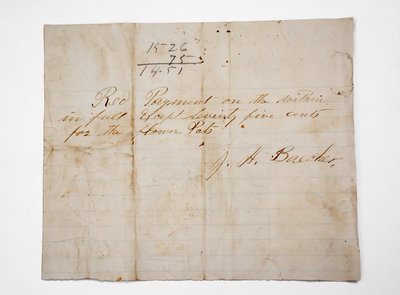 15 26
75
14.51
Rec Payment on the within
in full Except Seventy five cents
for the flower Pots
J. H. Baecher,